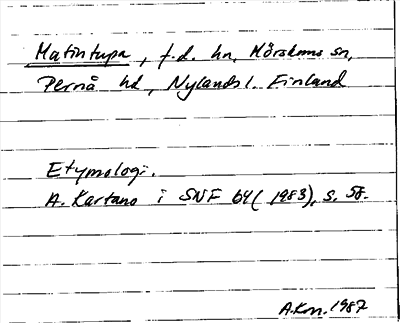 Matintupa, f.d. hn, Mörskoms sn,
Pernå hd, Nylands l. Finland
Etymologi.
A. Kartano i SNF 64 (1983), s. 58.
1987